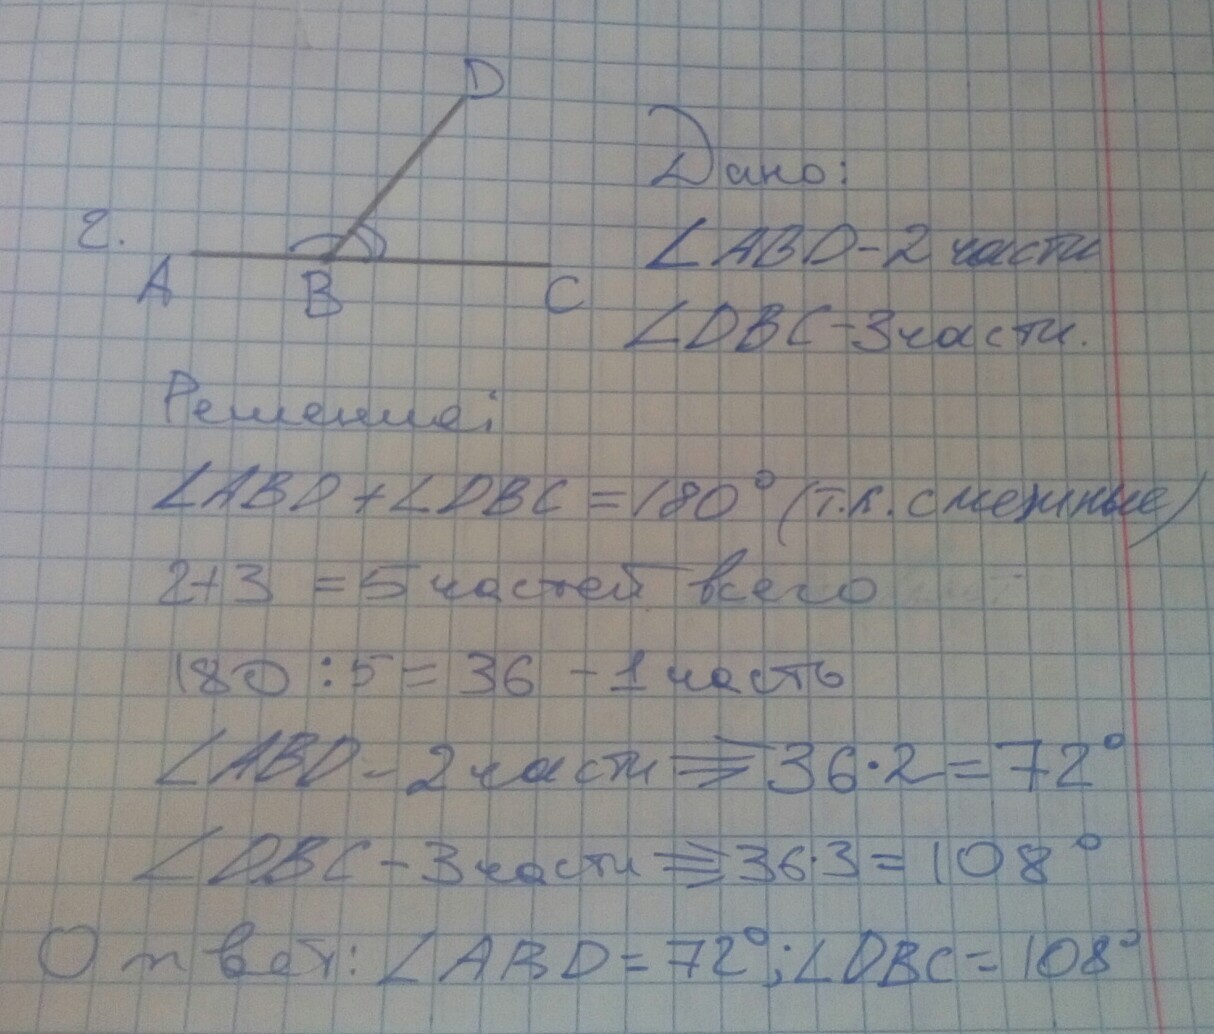 D
Дано:
2.
A B C
∠ABD - 2 части
∠DBC - 3 части.
Решение:
∠ABD + ∠DBC = 180° (т.к. смежные)
2+3 = 5 частей всего
180 : 5 = 36 - 1 часть
∠ABD - 2 части ⇒ 36·2 = 72°
∠DBC - 3 части ⇒ 36·3 = 108°
Ответ: ∠ABD = 72°; ∠DBC = 108°